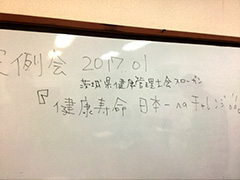 定例会 2017.01
茨城県健康管理士会スローガン
『健康寿命 日本一 naチャレンジ